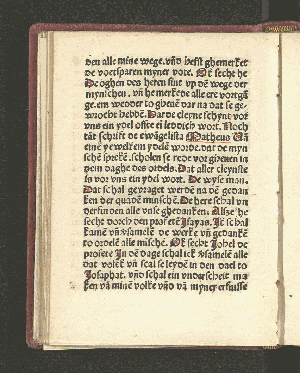 den alle mine wege. vñd hefft ghemerket
de voetsparen myner vote. Ok secht he
De oghen des heren sint vp dē wege der
mynschen. vñ he merkede alle ere vortgā
ge. em wedder to gheuē dar na dat se ge-
wrocht hebbē. Dar de cleyne schynt vor
vns ein ydel ofte ei leddich wort. Noch
tās schrift de ewāgelista Matheus Uā
eine yewelkem ydelē worde. dat de myn
schē sprekē. scholen se rede vor gheuen in
dem daghe des ordels. Dat aller cleynste
is vor vns ein ydel wort. De wyse man
Dat schal gevraget werdē na dē gedan
ken der quadē minschē. De here schal vn
derfinden alle vnse ghedanken. Alse he
secht dorch den profetē Isayas. Ik schal
kamē vñ vsamelē de werke vñ gedankē
to ordelē alle mischē. Ok secht Johel de
profete In dē dage schal ick vsamelē alle
dat volck vñ scal se leydē in den dael to
Josaphat. vñd schal ein vnderscheit ma
ken vā minē volke vñd vā myner erfnisse